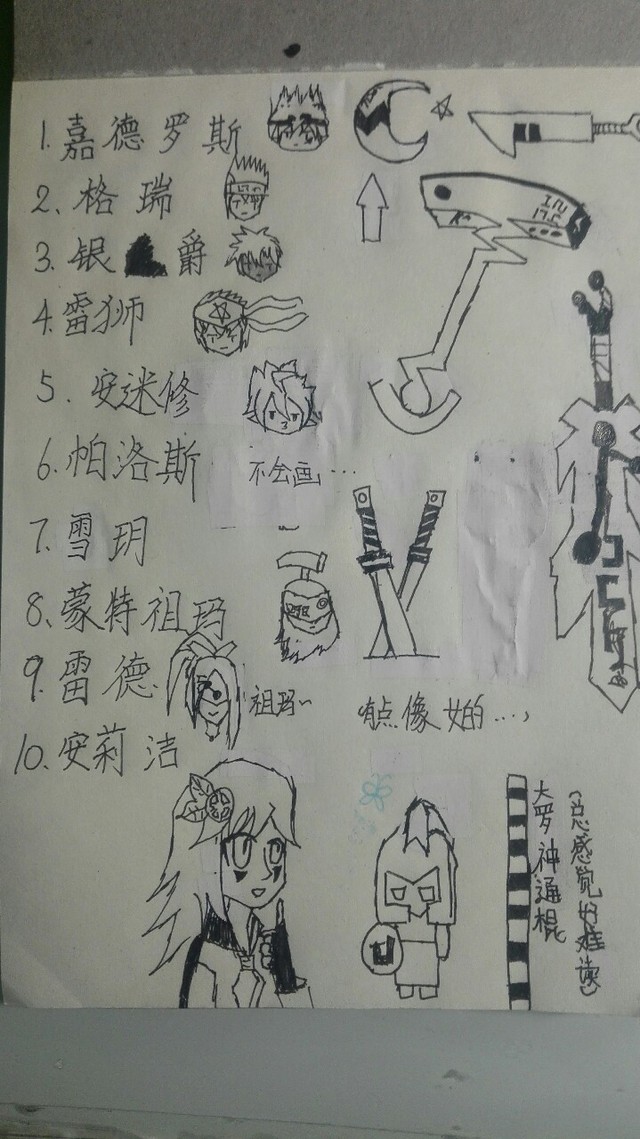 1.嘉德罗斯
2.格瑞
3.银爵
4.雷狮
5.安迷修
6.帕洛斯
不会画…
7.雪玥
8.蒙特祖玛
9.雷德
祖玛~
有点像女的…,
10.安莉洁
大罗神通棍
(总感觉好难读)